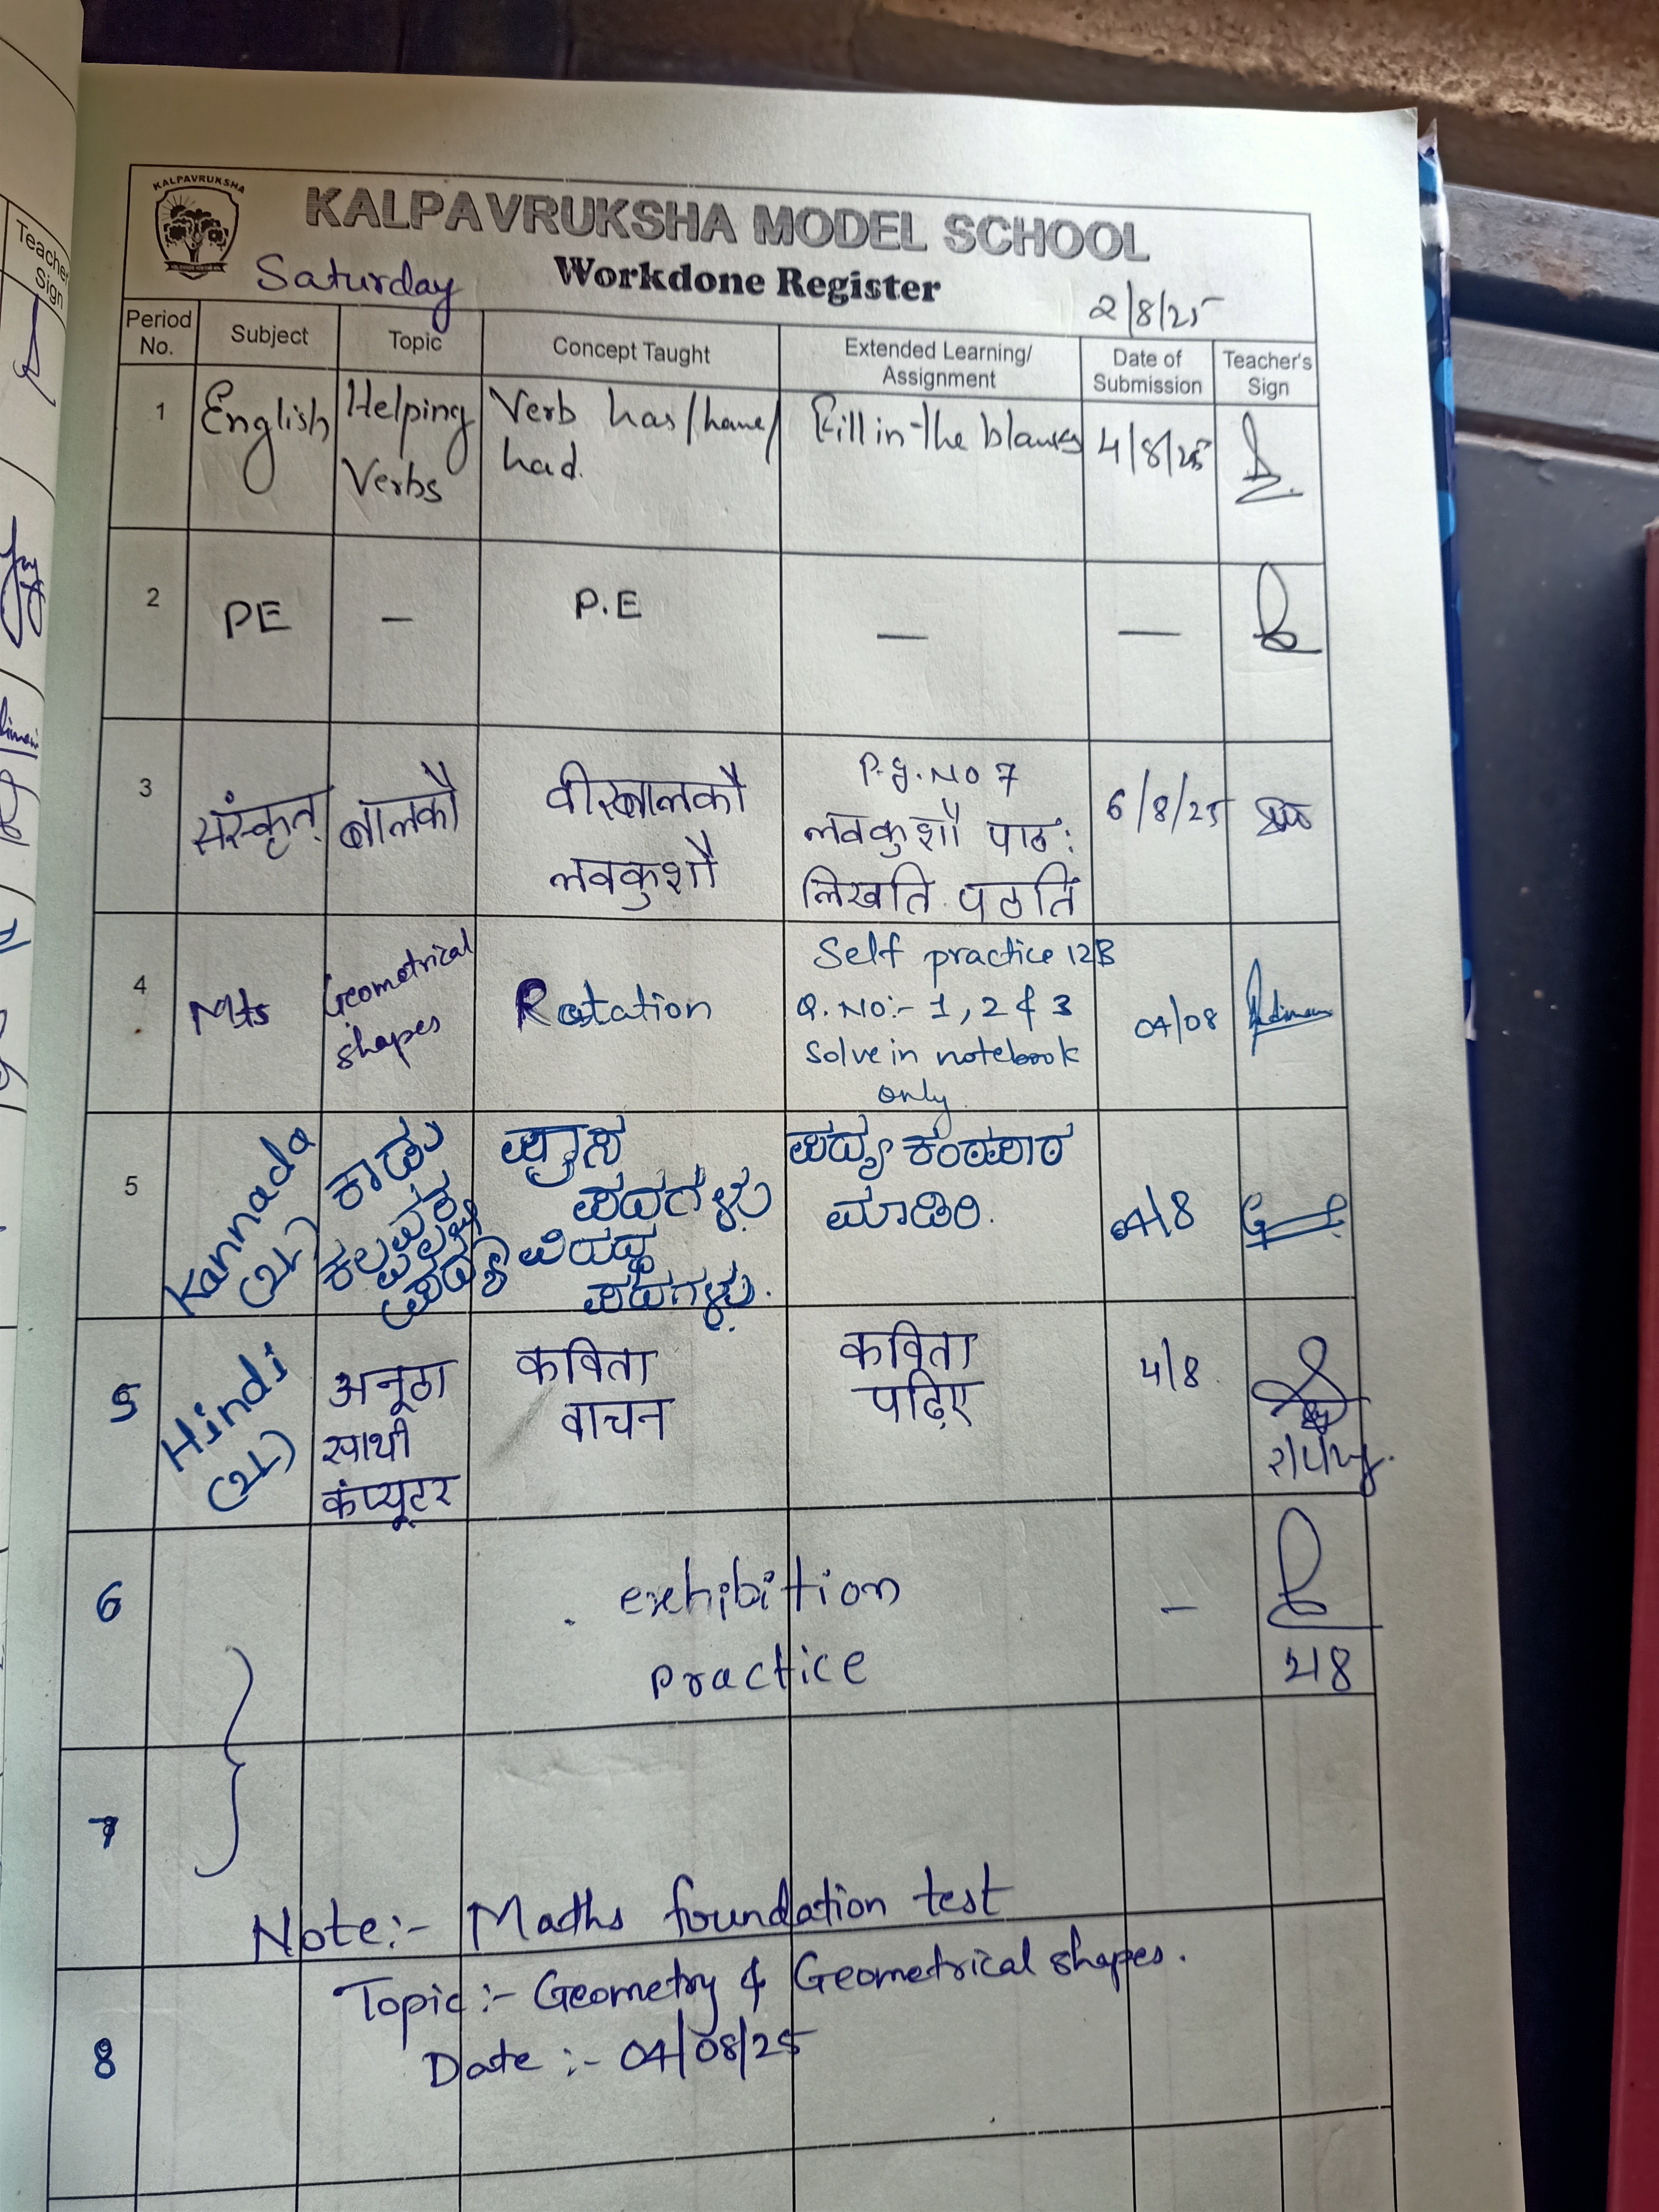 KALPAVRUKSHA
KALPAVRUKSHA MODEL SCHOOL
Saturday Workdone Register 2/8/25
Period No. Subject Topic Concept Taught Extended Learning/ Assignment Date of Submission Teacher's Sign
1 English Helping Verbs Verb has/have/ had. Fill in the blanks 4/8/25
2 PE — P.E — —
3 संस्कृत् बालकौ वीरबालकौ लवकुशौ P.g.NO 7 लवकुशौ पाठ: लिखति पठति 6/8/25
4 Mts Geometrical shapes Rotation Self practice 12B Q.NO:- 1, 2 & 3 Solve in notebook only 04/08
5 Kannada (2L) ಕಾಡು ಪ್ರಾಸ ಪದಗಳು ವಿರುದ್ಧ ಪದಗಳು. ಪದ್ಯ ಕಂಠಪಾಠ ಮಾಡಿರಿ. 04/8
5 Hindi (2L) अनूठा साथी कंप्यूटर कविता वाचन कविता पढ़िए 4/8.
6 exhibition practice — 2/8
7
Note:- Maths foundation test
Topic:- Geometry & Geometrical shapes.
8 Date:- 04/08/25
Teacher Sign